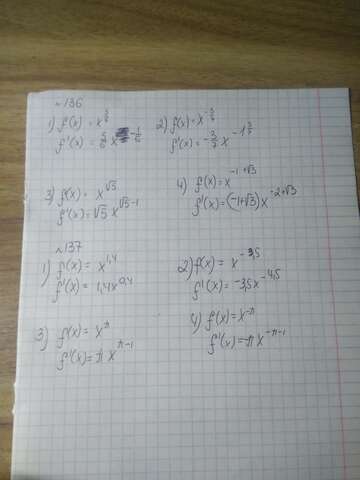 №136
1) f(x) = x^{5/6}
f'(x) = 5/6 x^{-1/6}
2) f(x) = x^{-3/7}
f'(x) = -3/7 x^{-1 3/7}
3) f(x) = x^{√3}
f'(x) = √3 x^{√3-1}
4) f(x) = x^{-1+√3}
f'(x) = (-1+√3) x^{-2+√3}
№137
1) f(x) = x^{1,4}
f'(x) = 1,4x^{0,4}
2) f(x) = x^{-3,5}
f'(x) = -3,5x^{-4,5}
3) f(x) = x^π
f'(x) = π x^{π-1}
4) f(x) = x^{-π}
f'(x) = -π x^{-π-1}